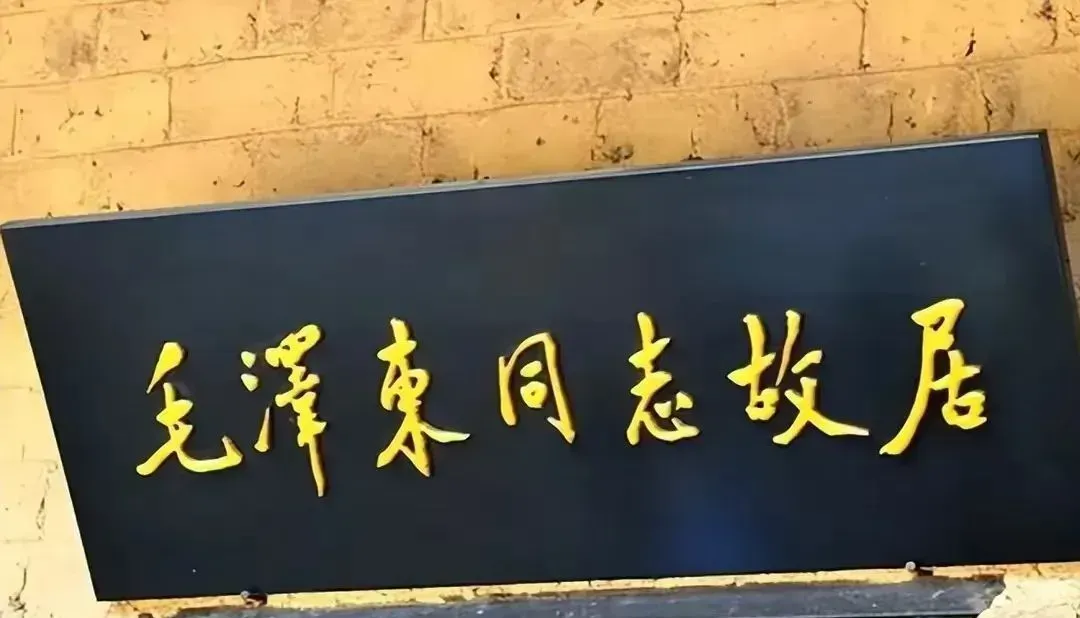 毛澤東同志故居